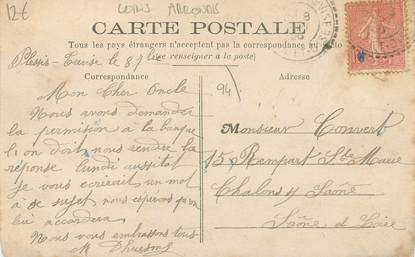 12€
COINS ARRONDIS
CARTE POSTALE
Tous les pays étrangers n'acceptent pas la correspondance au
(Se renseigner à la poste)
Plessis-Trévise le 8 7
Correspondance
Adresse
94
Mon Cher Oncle
Nous avons demander
la permission à la banque
on doit nous rendre la
réponse lundi aussitôt
je vous écrirait un mot
à sujet nous espérons qu'on
lui accordera
Nous vous embrassons tous
Monsieur Convert
15 Rempart Ste Marie
Chalons s/ Saône
Saône et Loire